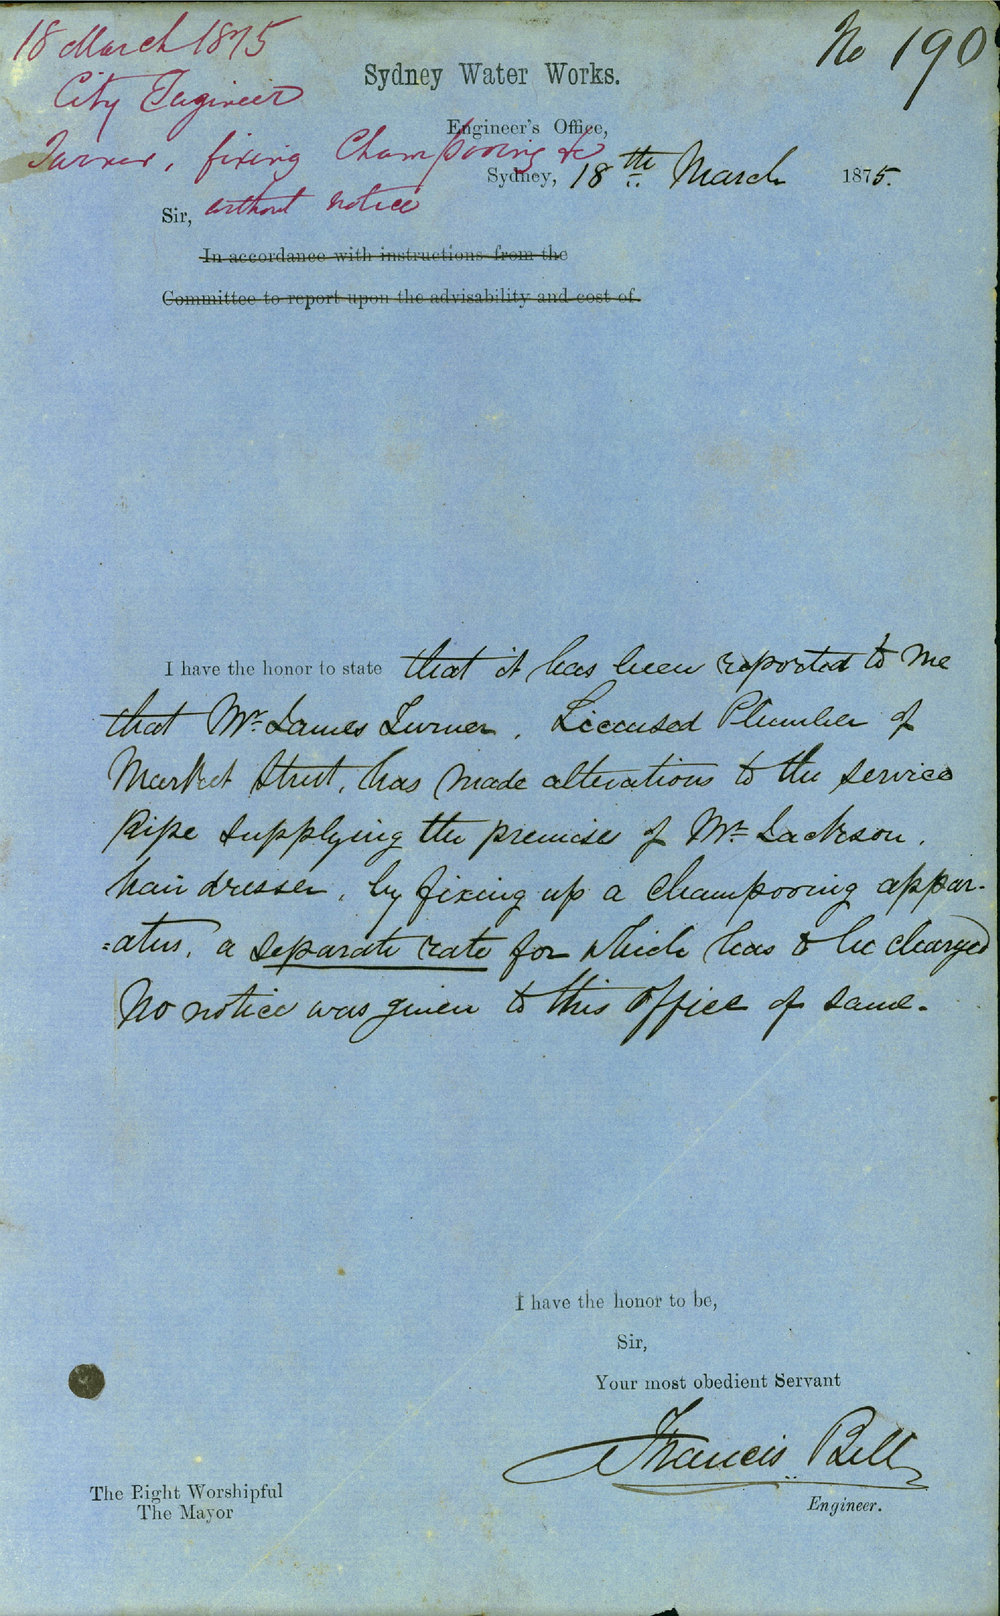 18 March 1875
No 190
City Engineer
Sydney Water Works.
Engineer's Office,
Turner, fixing Champooing &c
Sydney, 18th March 1875.
Sir, without notice
In accordance with instructions from the
Committee to report upon the advisability and cost of.
I have the honor to state that it has been reported to me
that Mr James Turner, Licensed Plumber of
Market Street, has made alterations to the service
Pipe supplying the premises of Mr Jackson,
hair dresser, by fixing up a Champooing appar-
=atus, a separate rate for which has to be charged
No notice was given to this Office of same.
I have the honor to be,
Sir,
Your most obedient Servant
Francis Bell
Engineer.
The Right Worshipful
The Mayor